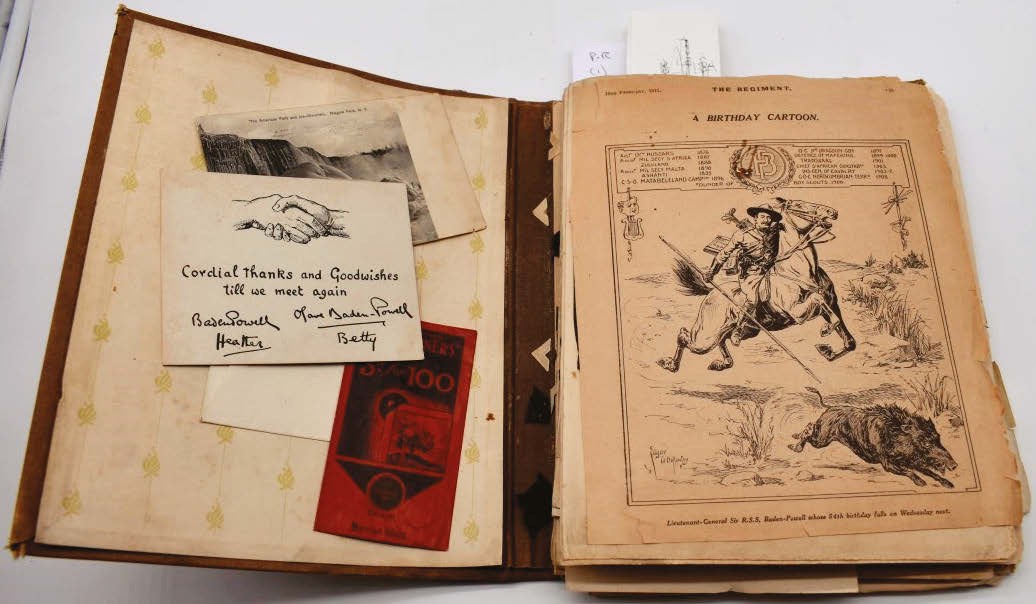 "The American Falls and Ice-Mountain. Niagara Falls, N. Y.
Cordial thanks and Goodwishes
till we meet again
Baden Powell
Olave Baden-Powell
Heather
Betty
5 for 100
P-R
(1)
THE REGIMENT.
A BIRTHDAY CARTOON.
ADJT 13TH HUSSARS 1876
MIL SECY S AFRICA 1887
ZULULAND 1888
MIL SECY MALTA 1890
ASHANTI 1895
C·S·O· MATABELELAND CAMPGN 1896
FOUNDER OF
O·C 5TH DRAGOON GDS 1897
DEFENCE OF MAFEKING 1899-1900
TRANSVAAL 1901
CHIEF S·AFRICAN CONSTABY
INS GEN. OF CAVALRY 1903-7
G·O·C NORTHUMBRIAN TERRS 1908
BOY SCOUTS 1908
Lieutenant-General Sir R.S.S. Baden-Powell whose 54th birthday falls on Wednesday next.